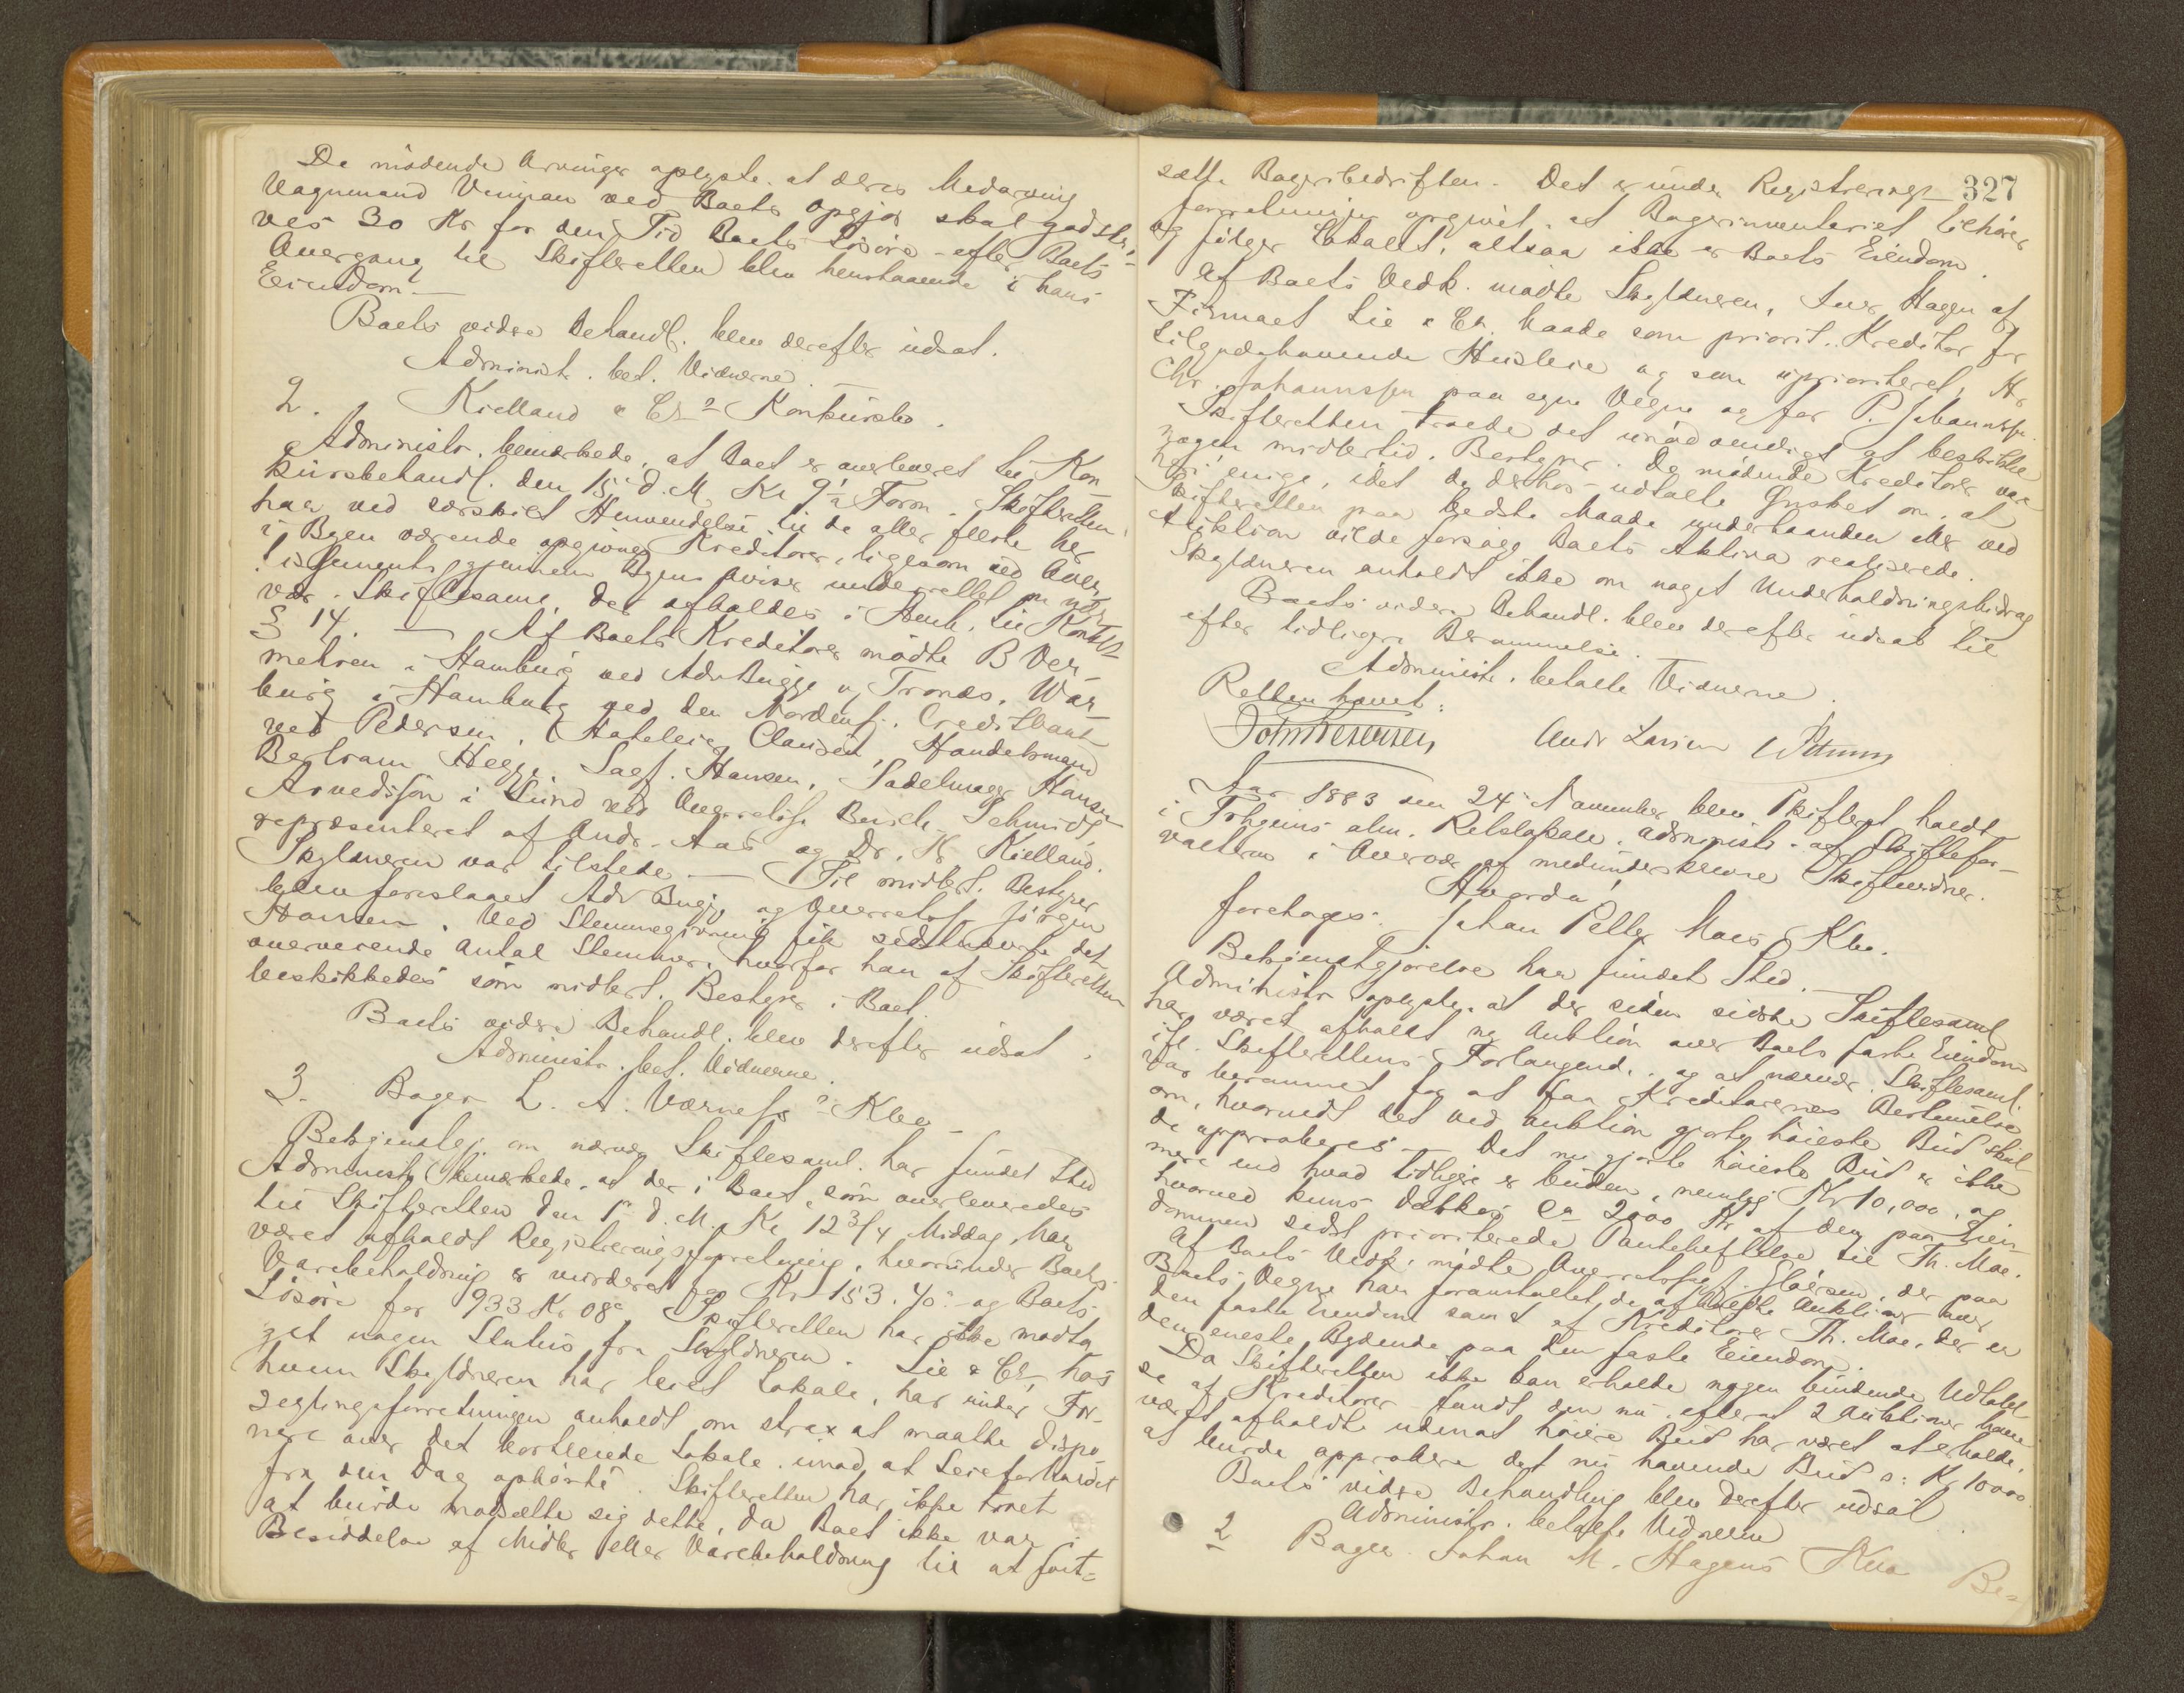 De mødende Arvinger oplyste, at deres Medarving
Vognmand Vinnan ved Boets Opgjør skal godskri-
ves 30 Kr for den Tid Boets Løsøre - efter Boets
Overgang til Skifteretten blev henstaaende i hans
Eiendom. —
Boets videre Behandl. blev derefter udsat.
Administr. bet. Vidnerne. —
2. Kielland & Co's Konkursbo.
Administr. bemærkede, at Boet er overleveret til Kon-
kursbehandl. den 15de d. M. Kl 9½ Form. Skifteretten
har ved særskilt Henvendelse til de aller fleste her
i Byen værende opgivne Kreditorer, ligesom ved Aver-
tissements gjennem Byens Aviser underrettet om nær-
vær. Skiftesaml. der afholdes i Henh. til Konkl
§ 14. — Af Boets Kreditorer mødte B Ver-
mehren i Hamburg ved Adv Bugge og Tronæs, War-
burg i Hamburg ved den Nordenf. Creditbank
ved Pedersen, Clausen, Handelsmand
Bertram Hegge, Sagf. Hansen, Sadelmager Hansen
Arvedsson i Lund ved Overretssf Busch, Schmidt
repræsenteret af Andr. Aas og Dr. K Kielland.
Skyldneren var tilstede. — Til midlert. Bestyrer
blev foreslaaet Adv Bugge og Overretssf Jørgen
Hansen. Ved Stemmegivning fik sidstnævnte det
overveiende Antal Stemmer, hvorfor han af Skifteretten
beskikkedes som midlert. Bestyrer i Boet.
Boets videre Behandl. blev derefter udsat.
Administr. bet. Vidnerne.
3. Bager L. A. Værness's Kbo
Bekjendtgj om nærvær Skiftesaml. har fundet Sted
Administr bemærkede, at der i Boet, som overleveredes
til Skifteretten den 1ste d. M. Kl 12¾ Middag, har
været afholdt Registreringsforretning, hvorunder Boets
Varebeholdning er vurderet for Kr 153.40 og Boets
Løsøre for 933 Kr 08. Skifteretten har ikke modta-
get nogen Status fra Skyldneren. Lie & Co, hos
hvem Skyldneren har leiet Lokale, har under For-
seglingsforretningen anholdt om strax at maatte dispo-
nere over det bortleiede Lokale, imod, at Leieforholdet
fra den Dag ophørte. Skifteretten har ikke troet
at burde modsætte sig dette, da Boet ikke var i
Besiddelse af Midler eller Varebeholdning til at fort-
327
sætte Bageribedriften. Det er under Registrerings-
forretningen opgivet, at Bagerinventariet tilhører
og følger Lokalet, altsaa ikke er Boets Eiendom.
Af Boets Vedk. mødte Skyldneren, Iver Hagen af
Firmaet Lie & Co. baade som priorit. Kreditor for
tilgodehavende Husleie og som uprioriteret, H
Chr. Johannssen paa egne Vegne og for P. Johannssen.
Skifteretten troede det unødvendigt at beskikke
nogen midlertid. Bestyrer. De mødende Kreditorer var
heri enige, idet de derhos udtalte Ønsket om, at
Skifteretten paa bedste Maade underhaanden eller ved
Auktion vilde forsøge Boets Aktiva realiserede.
Skyldneren anholdt ikke om noget Underholdningsbidrag
Boets videre Behandl. blev derefter udsat til
efter tidligere Berammelse.
Administr. betalte Vidnerne.
Retten hævet:
Andr Larsen
Aar 1883 den 24de November blev Skifteret holdt
i Trhjems alm. Retslokale, administr. af Skiftefor-
valteren i Overvær af medunderskrevne Skiftevidner.
Hvorda
foretoges: Johan Petter Moes Kbo.
Bekjendtgjørelse har fundet Sted. —
Administr oplyste, at der siden sidste Skiftesaml
har været afholdt ny Auktion over Boets faste Eiendom
ifl. Skifterettens Forlangend. og at nærvær. Skiftesaml.
var berammet for at faa Kreditorernes Bestemmelse
om, hvorvidt det ved Auktion gjorte høieste Bud skul-
de approberes — Det nu gjorte høieste Bud er ikke
mere end hvad tidligere er buden, nemlig Kr 10,000, og
hvorved kuns dækkes ca 2000 Kr af den paa Eien-
dommen sidst prioriterede Pantehæftelse til Th. Moe.
Af Boets Vedk. mødte Overretssagf. Gløersen, der paa
Boets Vegne har foranstaltet de afholdte Auktioner over
den faste Eiendom samt af Kreditorer Th. Moe, der er
den eneste Bydende paa den faste Eiendom.
Da Skifteretten ikke kan erholde nogen bindende Udtalel-
se af Kreditorer fandt den nu, efterat 2 Auktioner have
været afholdte udenat høiere Bud har været at erholde,
at burde approbere det nu havende Bud o: Kr 10000.
Boets videre Behandling blev derefter udsat
Administr. betalte Vidnerne
2 Bager Johan M. Hagens Kbo Be-